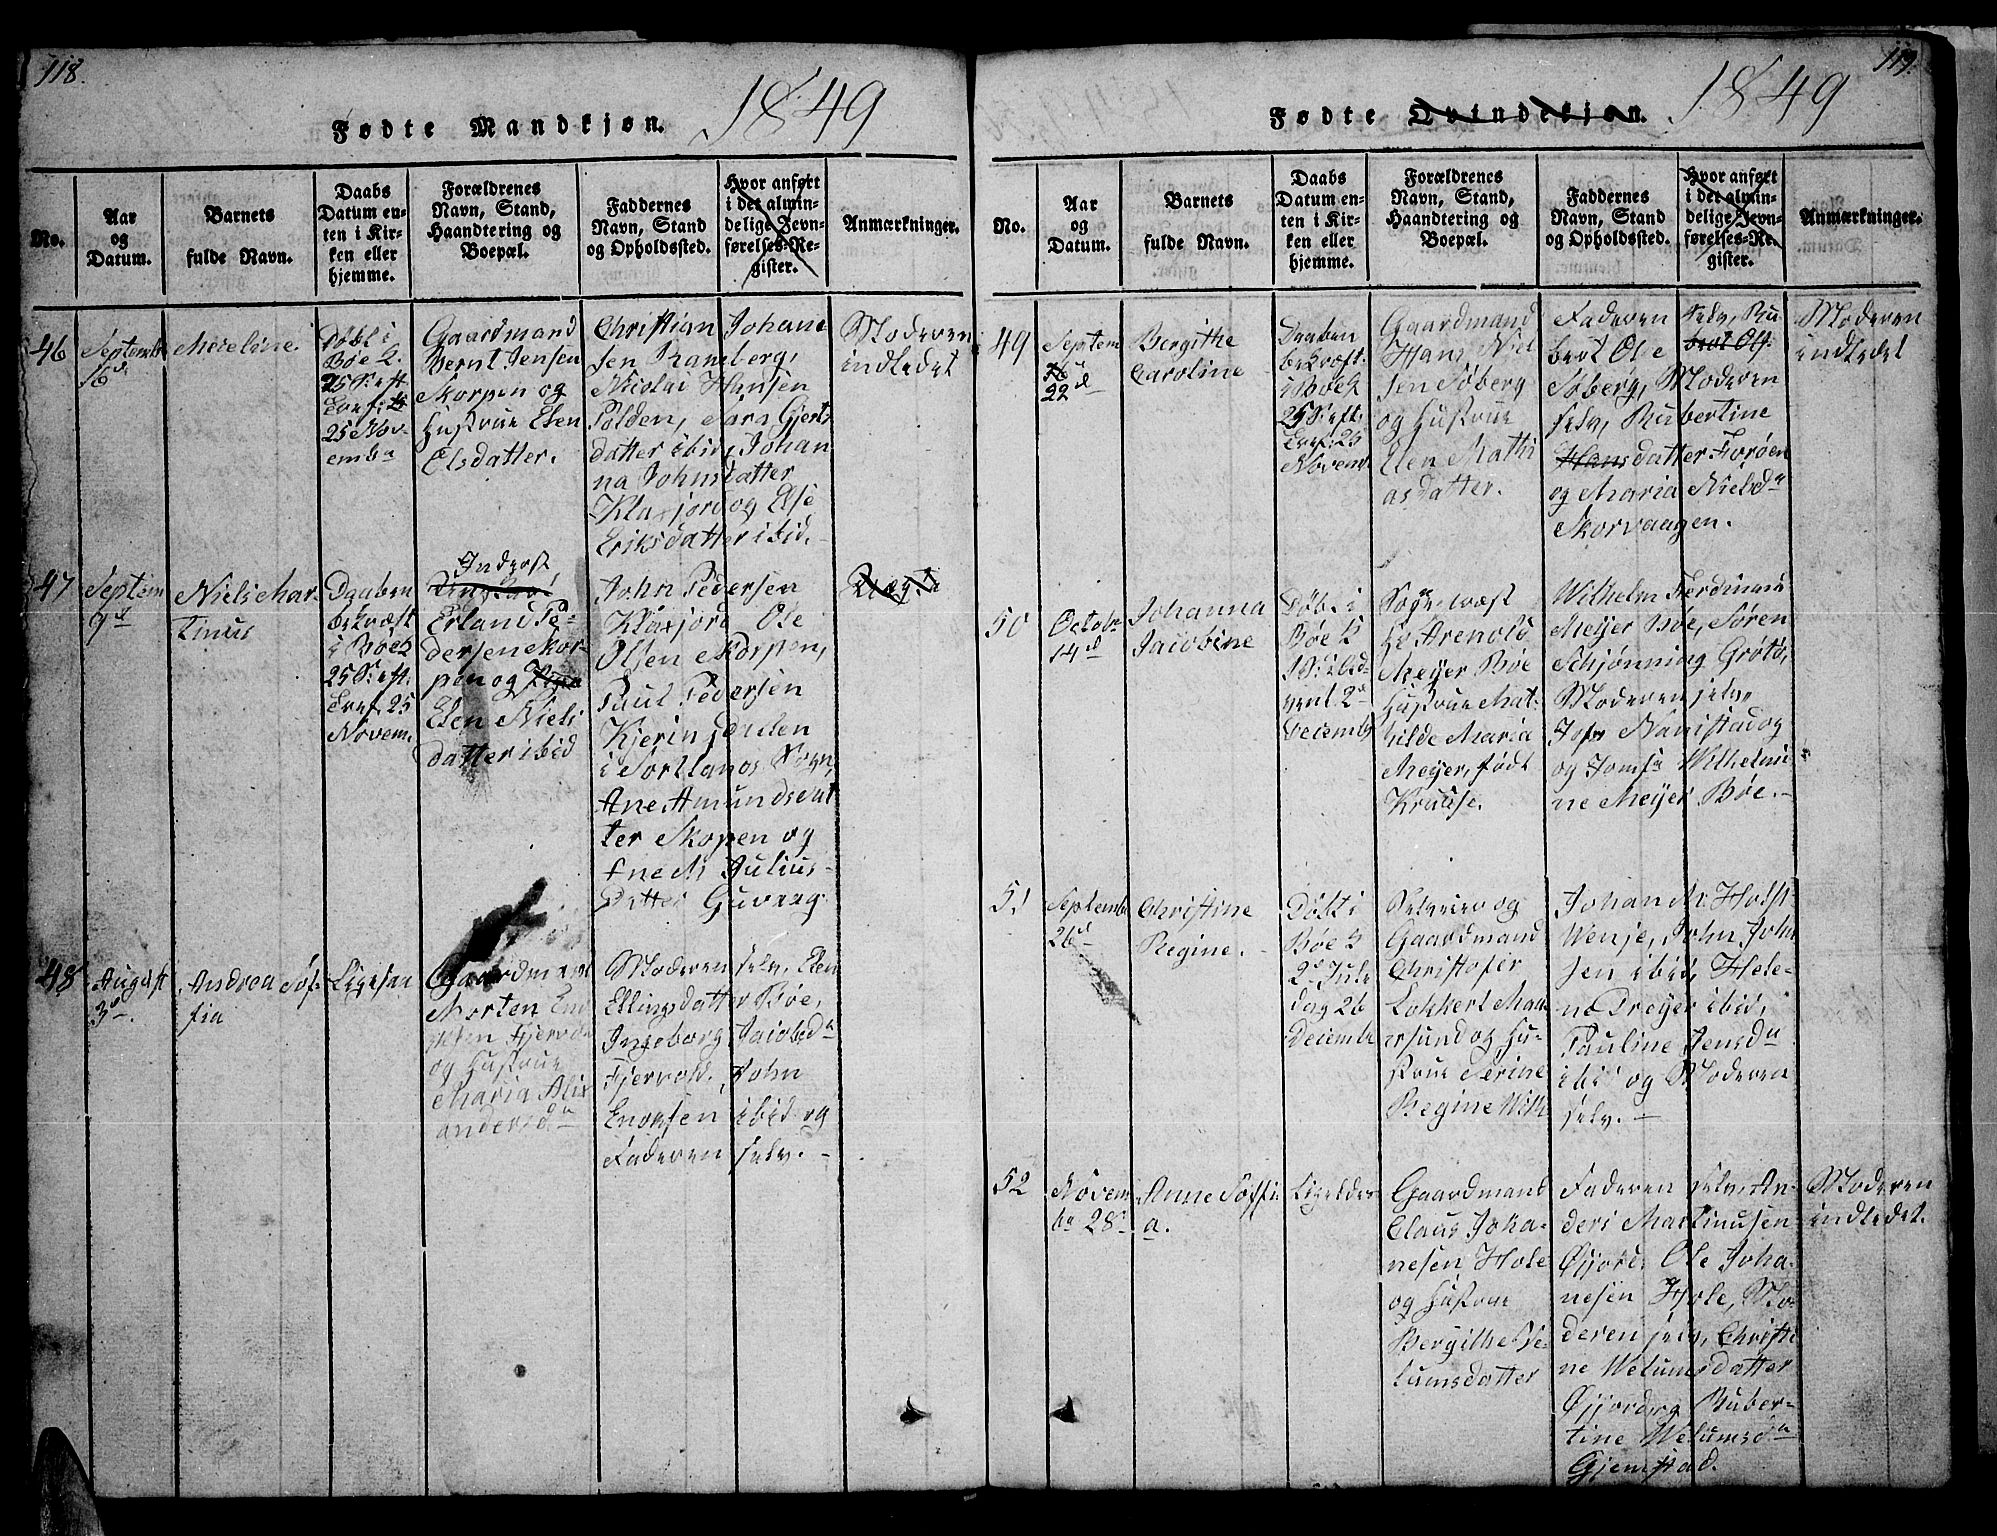 118.
Fødte Mandkjøn. 1849
No.
Aar
og
Datum.
Barnets
fulde Navn.
Daabs
Datum en-
ten i Kir-
ken eller
hjemme.
Forældrenes
Navn, Stand,
Haandtering og
Boepæl.
Faddernes
Navn, Stand
og Opholdssted.
Hvor anført
i det almin-
delige Jevn-
førelses-Re-
gister.
Anmærkninger.
46
September
16d
Meieline
Døbt i
Bøe K.
25 S: eft
Tref:
25 Nov-
emba
Gaardmand
Bernt Jensen
Skorpen og
Hustrue Elen
Elsdatter.
Christian Johan-
sen Ramberg,
Nicolai Hansen
Polden, Sara Gjert-
datter ibid, Johan
na Johnsdatter
Klaxjord og Else
Eriksdatter ibid.
Moderen
indledet
47
Septem
9d
Niels Mar-
tinus
Daaben
bekræft
i Bøe K
25 S: eft.
Tref. 25
Novem.
Inderst
Erland Pe-
dersen Skor-
pen og
Elen Niels
datter ibid
John Pedersen
Klaxjord Ole
Olsen Skorpen,
Paul Pedersen
Kjerinjorden
i Sortlands Sogn,
Ane Amundsdat
ter Skopen og
Julius-
Datter Guvaag
48
August
3d.
Andrea Sof-
fia
Ligesaa
Gaardmand
Morten En
Fjervol
og Hustrue
Maria Alex
andersda
Moderen selv, Elen
Ellingsdatter Bøe,
Ingeborg Jacobsda
Fjervold, John
Enoksen ibid og
Faderen selv.
119.
Fødte Qvindekjøn. 1849
No.
Aar
og
Datum.
Barnets
fulde Navn.
Daabs
Datum en-
ten i Kir-
ken eller
hjemme.
Forældrenes
Navn, Stand,
Haandtering og
Boepæl.
Faddernes
Navn, Stand
og Opholdssted.
Hvor anført
i det almin-
delige Jevn-
førelses-Re-
gister.
Anmærkninger.
49
Septem
22d
Bergithe
Caroline
Daaben
bekræft.
i Bøe K
25 S: eft.
Tref: 25
Novem.
Gaardmand
Hans Niel
sen Søberg
og Hustrue
Elen Mathi
asdatter.
Faderen selv, Ru
bert Ole
Søberg, Moderen
selv, Rubertine
Hansdatter Forøen
og Maria Nielsda
Skorvaagen.
Moderen
indledet
50
Octob
14d
Johanna
Jacobine
Døbt i
Bøe K
Advent 2d
Decemb
Sognepræst
Hr Arenold
Meyer Bøe
Hustrue Mat-
hilde Maria
Meyer, født
Krause.
Wilhelm Ferdinand
Meyer Bøe, Søren
Schjønning Grøtø,
Moderen selv,
Jofr Nanistad og
og Jomfr Wilhelmi
ne Meyer Bøe.
51
Septemb
26d
Christine
Regine.
Døbt i
Bøe K
2d Jule
dag 26
Decemb
Selveier og
Gaardmand
Christofer
Lokkert Maa
rsund og Hu-
strue Serine
Regine Wilh
Johan M: Holst
Wenje, John John
sen ibid, Hele-
na Dreyer ibid,
Pauline Jensda
ibid og Moderen
selv.
52
Novem
ba 28d
Anne Soffi
a.
Gaardmand
Claus Joha-
nesen Hole
og Hustrue
Bergithe We-
lumsdatter
Faderen selv, An-
ders Martinusen
Øjjord, Ole Joha-
nesen Hole, Mo-
deren selv, Christi
ne Welumsdatter
Øjjord og Ruber-
tine Welumsda
Gjemstad.
Moderen
indledet.